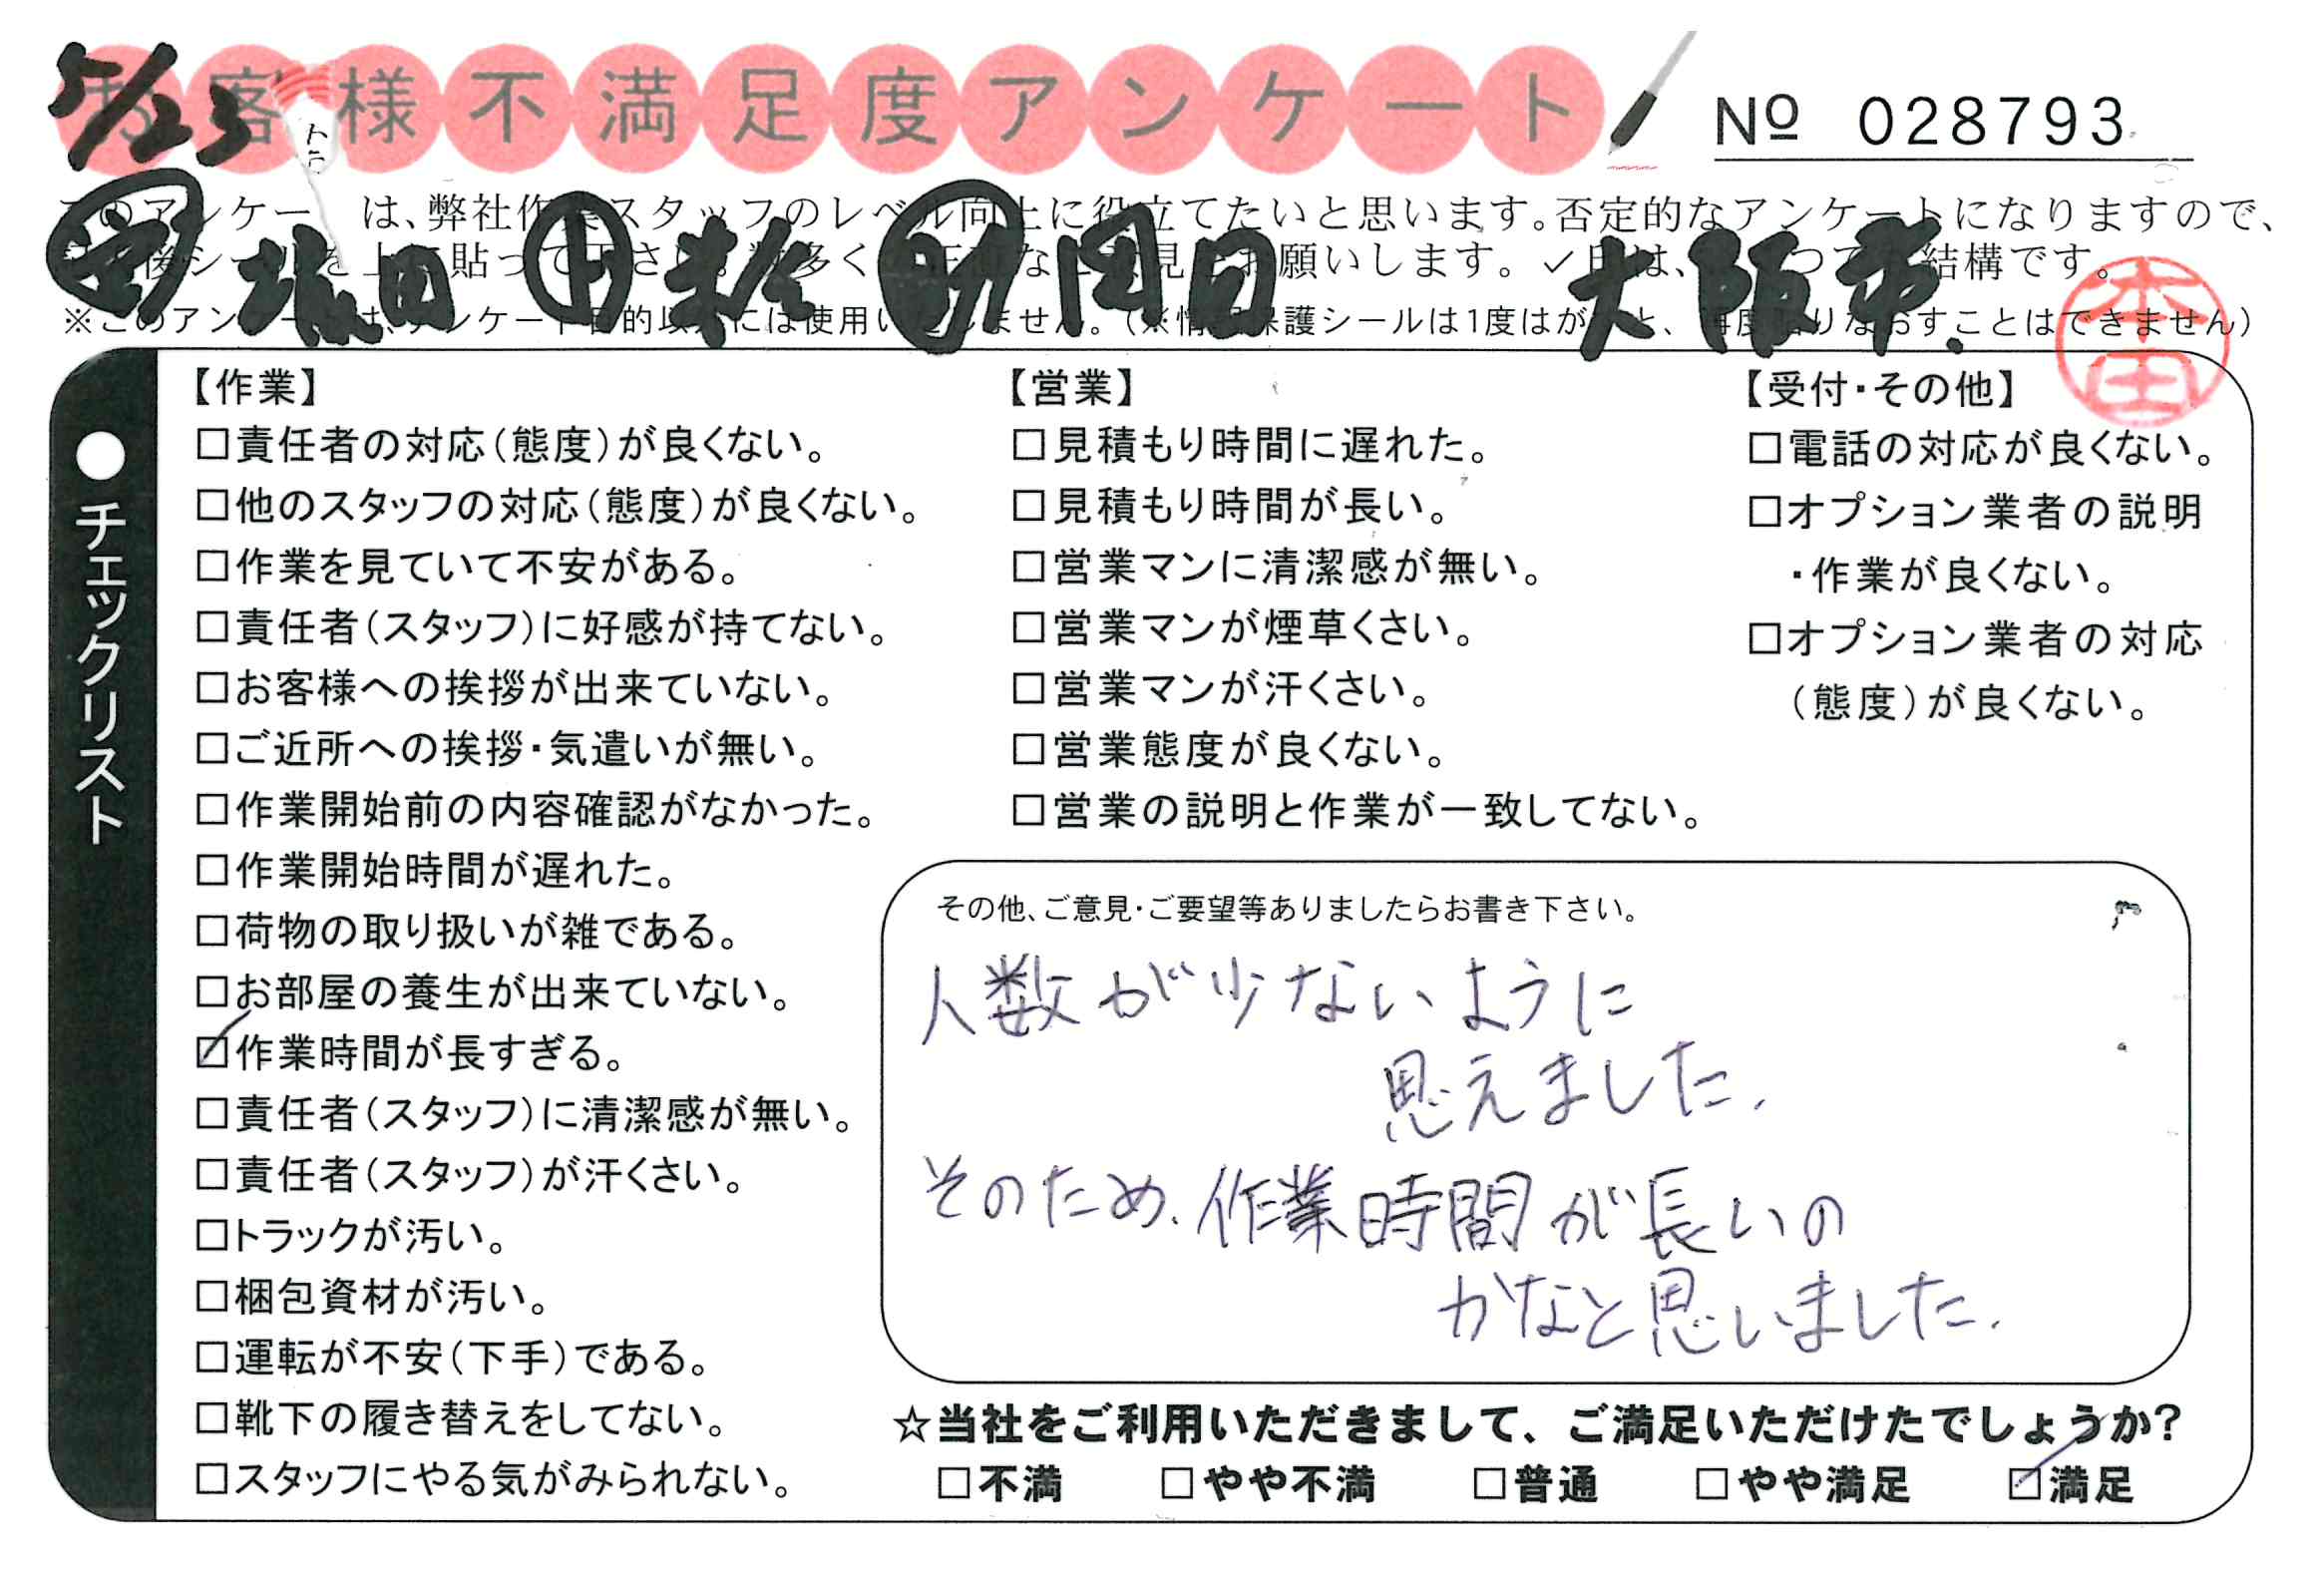 5/23
お客様不満足度アンケート
№ 028793
は、弊社作業スタッフのレベル向上に役立てたいと思います。否定的なアンケートになりますので、
大阪市.
本田
●チェックリスト
【作業】
□責任者の対応（態度）が良くない。
□他のスタッフの対応（態度）が良くない。
□作業を見ていて不安がある。
□責任者（スタッフ）に好感が持てない。
□お客様への挨拶が出来ていない。
□ご近所への挨拶・気遣いが無い。
□作業開始前の内容確認がなかった。
□作業開始時間が遅れた。
□荷物の取り扱いが雑である。
□お部屋の養生が出来ていない。
☑作業時間が長すぎる。
□責任者（スタッフ）に清潔感が無い。
□責任者（スタッフ）が汗くさい。
□トラックが汚い。
□梱包資材が汚い。
□運転が不安（下手）である。
□靴下の履き替えをしてない。
□スタッフにやる気がみられない。
【営業】
□見積もり時間に遅れた。
□見積もり時間が長い。
□営業マンに清潔感が無い。
□営業マンが煙草くさい。
□営業マンが汗くさい。
□営業態度が良くない。
□営業の説明と作業が一致してない。
【受付・その他】
□電話の対応が良くない。
□オプション業者の説明
・作業が良くない。
□オプション業者の対応
（態度）が良くない。
その他、ご意見・ご要望等ありましたらお書き下さい。
人数が少ないように
思えました.
そのため、作業時間が長いの
かなと思いました.
☆当社をご利用いただきまして、ご満足いただけたでしょうか?
□不満 □やや不満 □普通 □やや満足 ☑満足